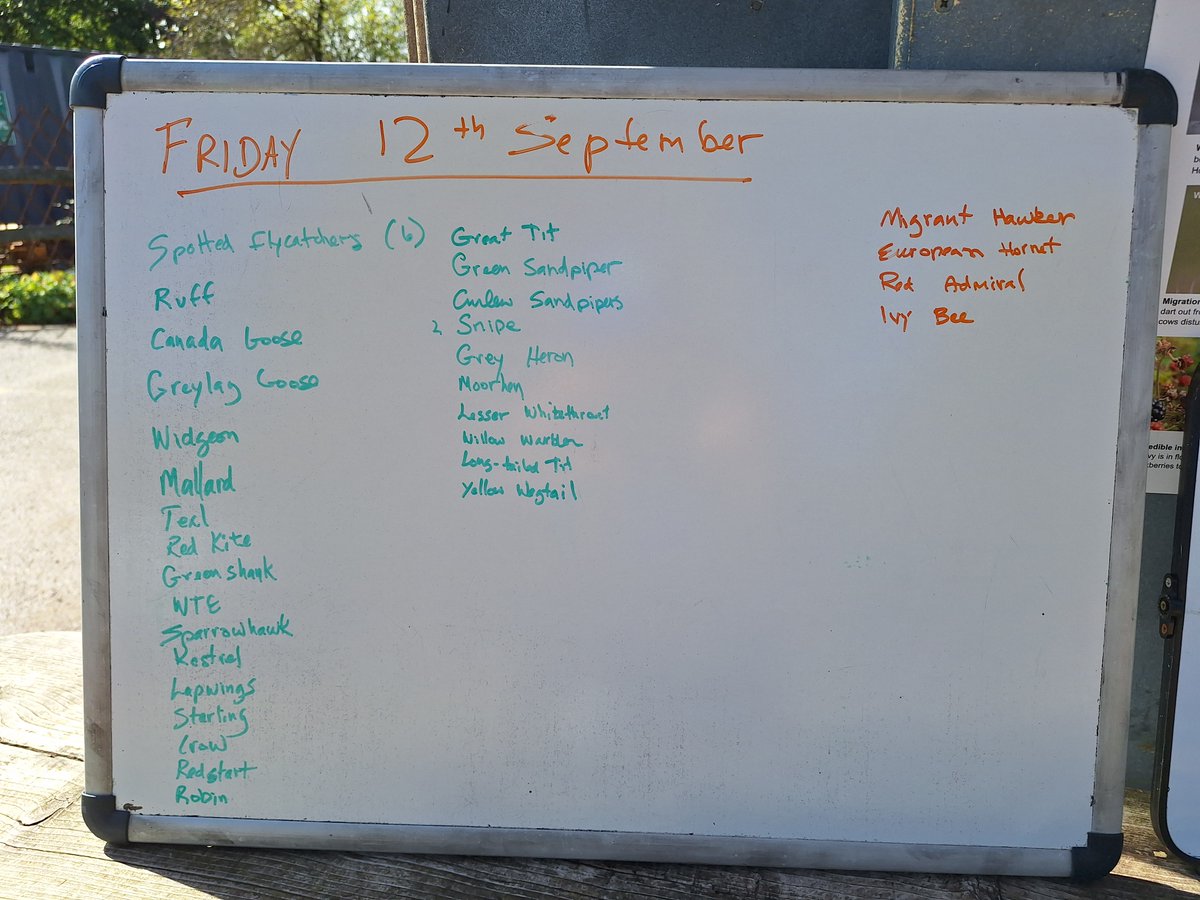 FRIDAY 12th September
Spotted Flycatchers (6)
Ruff
Canada Goose
Greylag Goose
Widgeon
Mallard
Teal
Red Kite
Greenshank
WTE
Sparrowhawk
Kestrel
Lapwings
Starling
Crow
Redstart
Robin
Great Tit
Green Sandpiper
Curlew Sandpipers
2 Snipe
Grey Heron
Moorhen
Lesser Whitethroat
Willow Warbler
Long-tailed Tit
Yellow Wagtail
Migrant Hawker
European Hornet
Red Admiral
Ivy Bee
Migration
dart out fr
cows distu
edible in
vy is in fl
berries to